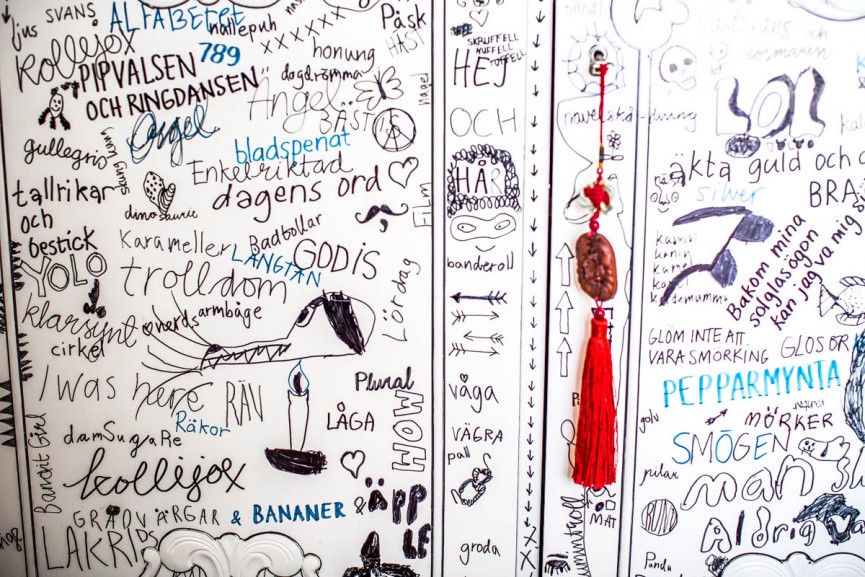 SVANS
ALFABETET
nallepuh
Påsk
HÄST
jus
xxxxxx
kollijox
789
honung
PIPVALSEN
OCH RINGDANSEN
dagdrömma
Ängel
BÄST
Nagel
Ängel
gullegris
bladspenat
Enkelriktad
dagens ord
tallrikar
och
bestick
dinosaurie
Film
Karameller
Badbollar
LÅNGTAN
GODIS
YOLO
trolldom
Lördag
klarsynt
nerds
armbåge
cirkel
I was here
RÄV
Plural
Räkor
LÅGA
HOW
damSugaRe
Bandit Girl
kollijox
GRÅDVÄRGAR & BANANER & ÄPPLE
LAKRIPS
SKRUFFELL
NUFFELL
TOFFELL
HEJ
OCH
HÅR
banderoll
våga
VÄGRA
pall
groda
MAT
rosmarin
LOL
äkta guld och
silver
BRA
kanin
kanin
Bakom mina
solglasögon
kan jag va mig
GLÖM INTE ATT
VARA SMÖRKING
GLOSÖR
PEPPARMYNTA
golv
MÖRKER
SMÖGEN
pilar
man
RUND
Aldrig
Panda